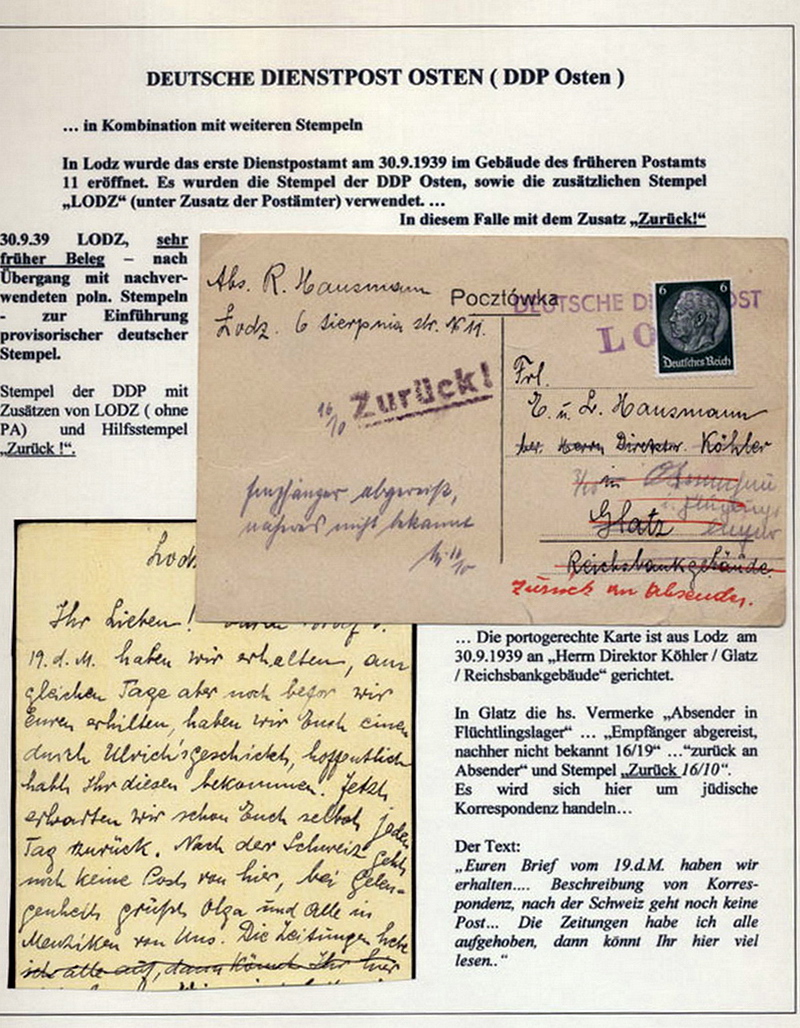 DEUTSCHE DIENSTPOST OSTEN ( DDP Osten )
... in Kombination mit weiteren Stempeln
In Lodz wurde das erste Dienstpostamt am 30.9.1939 im Gebäude des früheren Postamts
11 eröffnet. Es wurden die Stempel der DDP Osten, sowie die zusätzlichen Stempel
„LODZ“ (unter Zusatz der Postämter) verwendet. ...
In diesem Falle mit dem Zusatz „Zurück!“
30.9.39 LODZ, sehr
früher Beleg – nach
Übergang mit nachver-
wendeten poln. Stempeln
- zur Einführung
provisorischer deutscher
Stempel.
Stempel der DDP mit
Zusätzen von LODZ ( ohne
PA) und Hilfsstempel
„Zurück !“.
Abs. R. Hausmann
Lodz. 6 Sierpnia str. № 11.
Pocztówka
DEUTSCHE DI POST
LO
6 6
Deutsches Reich
16/10 Zurück!
Empfänger abgereist,
näheres nicht bekannt
16/10
Frl.
E. u. L. Hausmann
bei Herrn Direktor Köhler
in
Glatz
Reichsbankgebäude.
Zurück an Absender.
Lodz
Ihr Lieben!
19. d. M. haben wir erhalten, am
gleichen Tage aber noch bevor wir
Euren erhilten, haben wir Euch einen
durch Ulrich's geschickt, hoffentlich
habt Ihr diesen bekommen. Jetzt
erwarten wir schon Euch selbst jeden
Tag zurück. Nach der Schweiz geht
noch keine Post von hier, bei Gelen-
genheit grüßt Olga und alle in
Menziken von Uns. Die Zeitungen hebe
ich alle auf, dann könnt Ihr hier
... Die portogerechte Karte ist aus Lodz am
30.9.1939 an „Herrn Direktor Köhler / Glatz
/ Reichsbankgebäude“ gerichtet.
In Glatz die hs. Vermerke „Absender in
Flüchtlingslager“ ... „Empfänger abgereist,
nachher nicht bekannt 16/19“ ...“zurück an
Absender“ und Stempel „Zurück 16/10“.
Es wird sich hier um jüdische
Korrespondenz handeln...
Der Text:
„Euren Brief vom 19.d.M. haben wir
erhalten.... Beschreibung von Korres-
pondenz, nach der Schweiz geht noch keine
Post... Die Zeitungen habe ich alle
aufgehoben, dann könnt Ihr hier viel
lesen..“